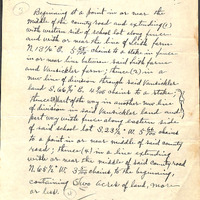 Beginning at a point in or near the
middle of the county road and extending (1)
with western side of school lot along fence
and with or near the line of said farm
N. 13¼° E. 5 chains to a stake in fence
in or near line between said Smith farm
and Vansickler farm; thence (2) in a
new line of division through said Vansickler
land S. 66¾° E. 4 chains to a stake;
thence (3) part of the way in another new line
of division through Vansickler land and
part way with fence along eastern side
of said school lot S. 23¾° W. 5 chains
to a point in or near middle of county
road; thence (4) in a line extending
with or near the middle of said county road
N. 65¼° W. 3 chains, to the beginning,
containing Two acres of land, more
or less.